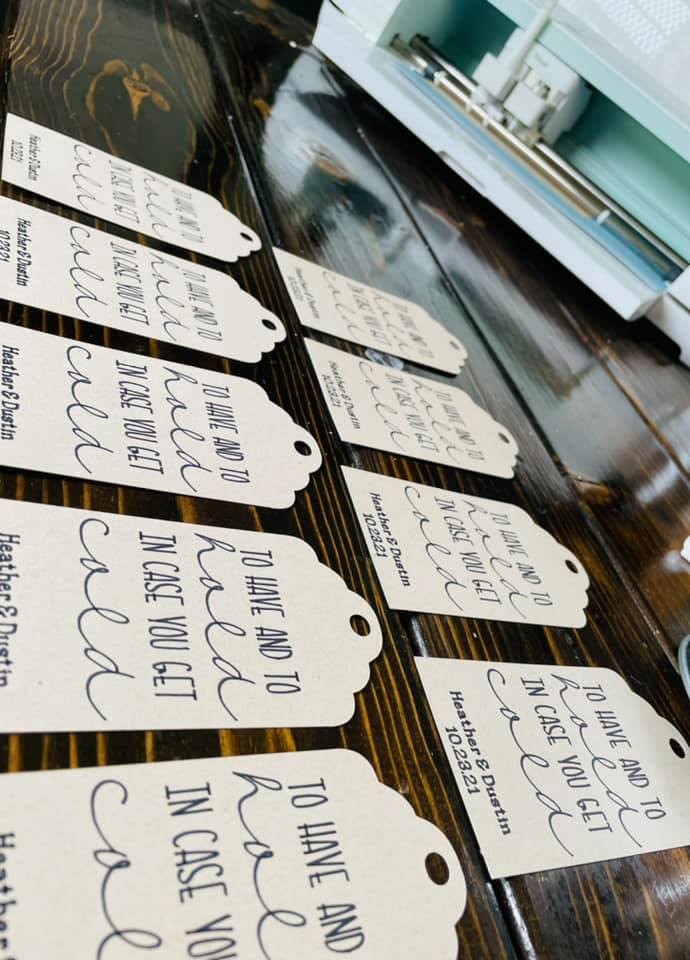 TO HAVE AND TO
hold
IN CASE YOU GET
cold
Heather & Dustin
10.23.21
TO HAVE AND TO
hold
IN CASE YOU GET
cold
Heather & Dustin
10.23.21
TO HAVE AND TO
hold
IN CASE YOU GET
cold
Heather & Dustin
TO HAVE AND TO
hold
IN CASE YOU GET
cold
Heather & Dustin
TO HAVE AND
hol
IN CASE YOU
col
Heather
TO HAVE AND TO
hold
IN CASE YOU GET
cold
Heather & Dustin
10.23.21
TO HAVE AND TO
hold
IN CASE YOU GET
cold
Heather & Dustin
10.23.21
TO HAVE AND TO
hold
IN CASE YOU GET
cold
Heather & Dustin
10.23.21
TO HAVE AND TO
hold
IN CASE YOU GET
cold
Heather & Dustin
10.23.21